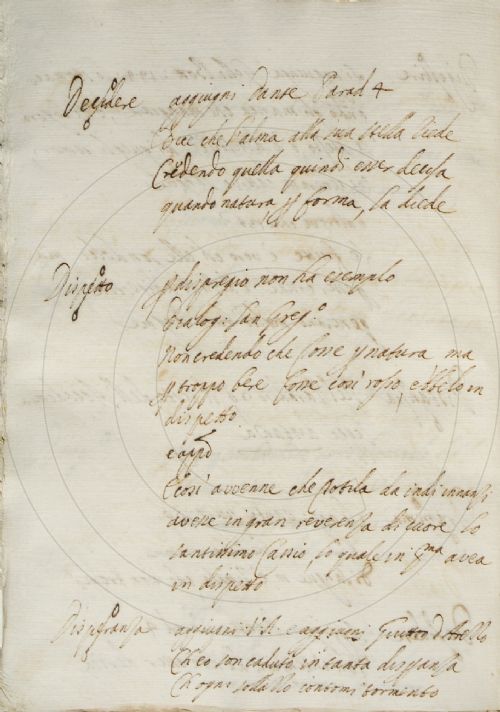 Decidere aggiugni Dante Parad 4
Dice che l'alma alla sua stella riede
Credendo quella quindi esser decisa
quando natura p forma la diede
Dispetto p dispregio non ha esempio
Dialog. San Greg.o
Non credendo che fosse p natura ma
p troppo bere fosse così rosso, ebbelo in
dispetto
e appo
E così avvenne che Totila da indi innanzi
avesse in gran reverenza di cuore lo
santissimo Cassio, lo quale in p.ma avea
in dispetto
Disperanza aggiugni V.A. e aggiugni Guitto d'Arezzo
Ch'eo son caduto in tanta disperanza
Ch'ogni sollazzo contomi tormento